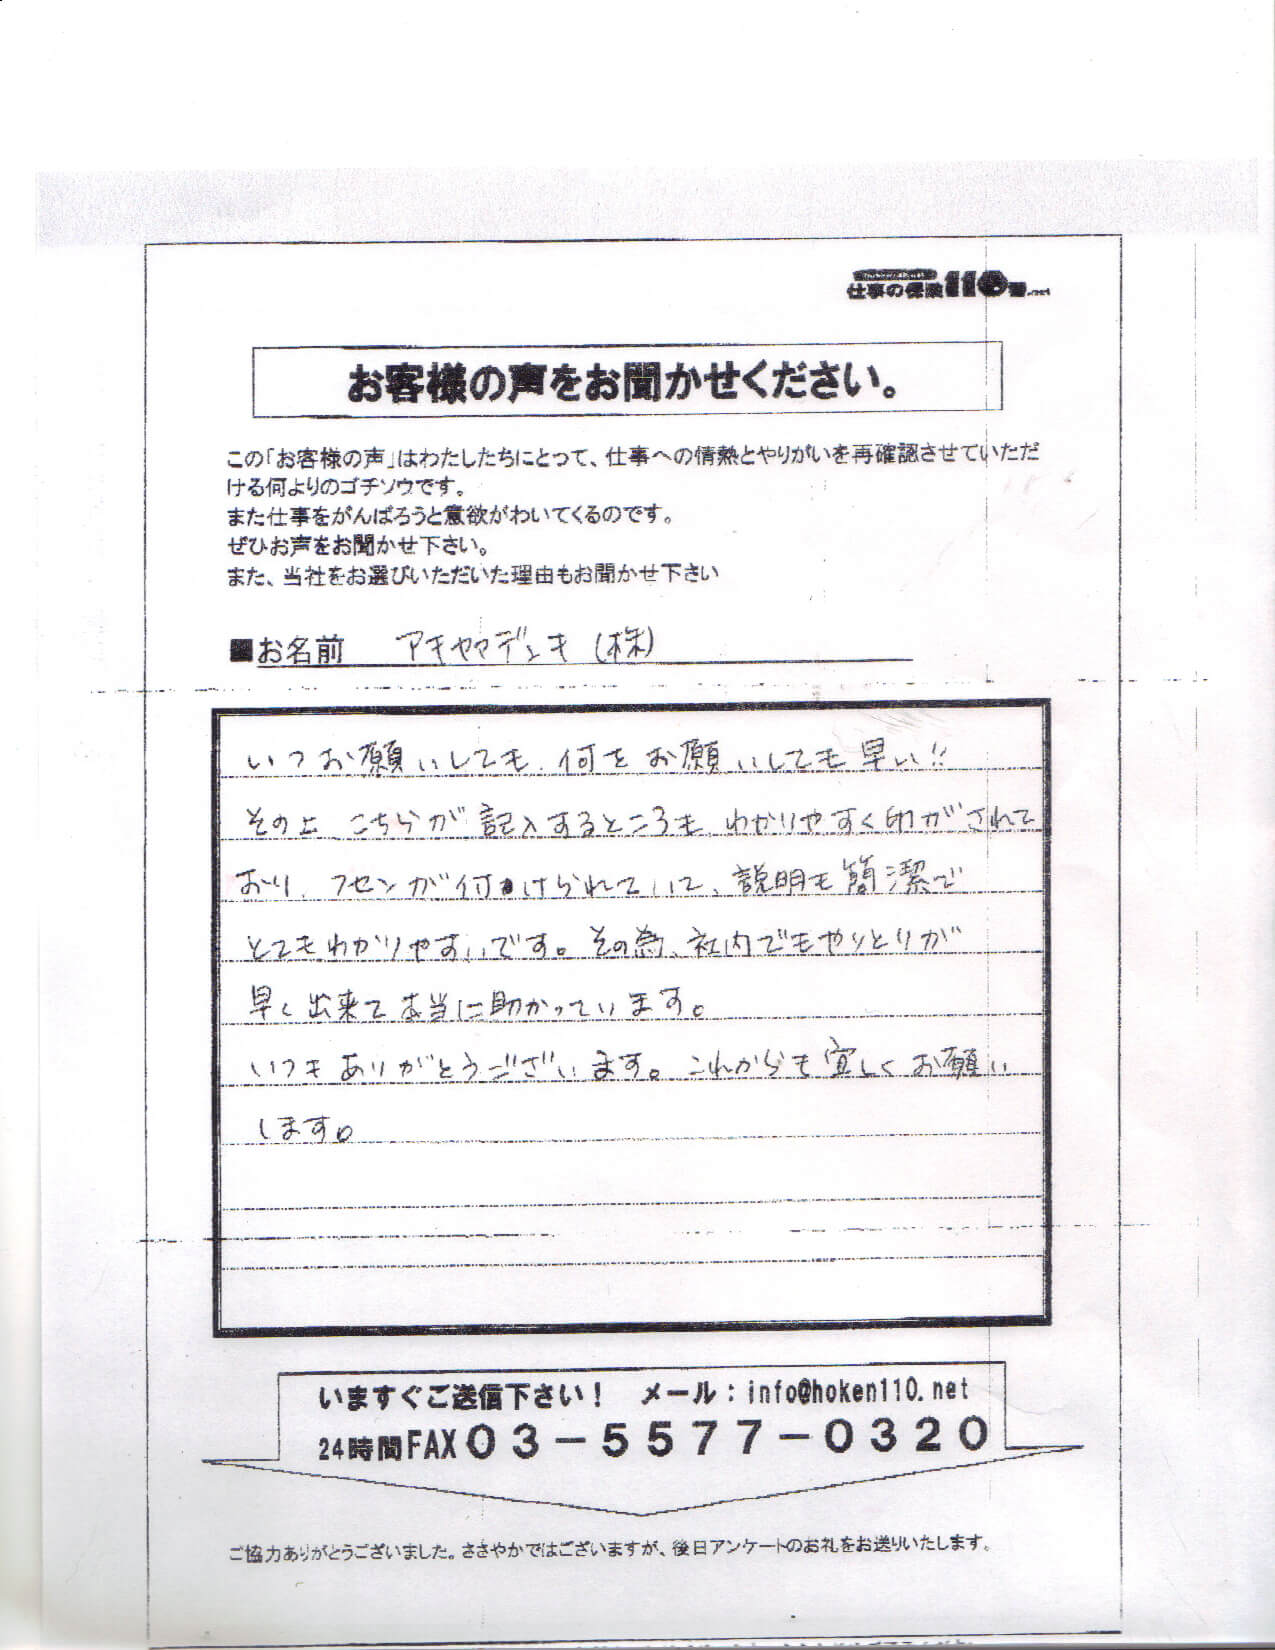 仕事の保険110番.net
お客様の声をお聞かせください。
この「お客様の声」はわたしたちにとって、仕事への情熱とやりがいを再確認させていただ
ける何よりのゴチソウです。
また仕事をがんばろうと意欲がわいてくるのです。
ぜひお声をお聞かせ下さい。
また、当社をお選びいただいた理由もお聞かせ下さい
■お名前 アキヤマデンキ(株)
いつお願いしても、何をお願いしても早い!!
その上、こちらが記入するところも、わかりやすく印がされて
おり、フセンが付けられていて、説明も簡潔で
とてもわかりやすいです。その為、社内でもやりとりが
早く出来て本当に助かっています。
いつもありがとうございます。これからも宜しくお願い
します。
いますぐご送信下さい! メール:info@hoken110.net
24時間FAX03-5577-0320
ご協力ありがとうございました。ささやかではございますが、後日アンケートのお礼をお送りいたします。